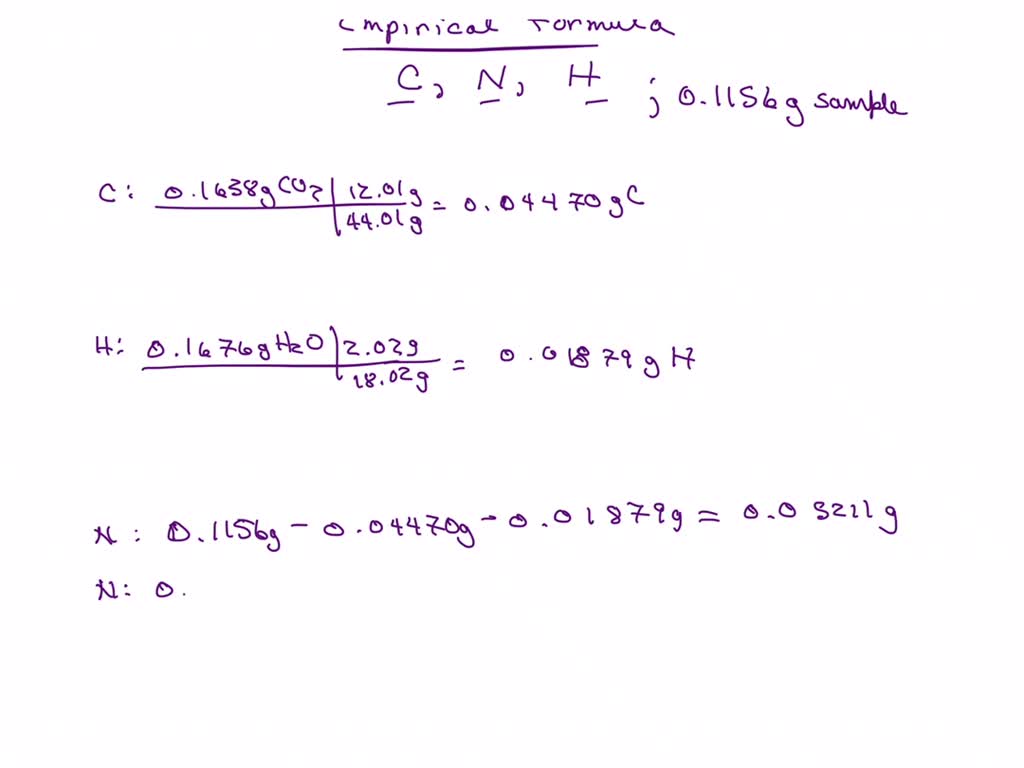 Empirical Formula
C, N, H ; 0.1156g sample
C: 0.1638g CO2 | 12.01g
44.01g = 0.04470 g C
H: 0.1676g H2O | 2.02g
18.02g = 0.01879 g H
N: 0.1156g - 0.04470g - 0.01879g = 0.05211g
N: 0.